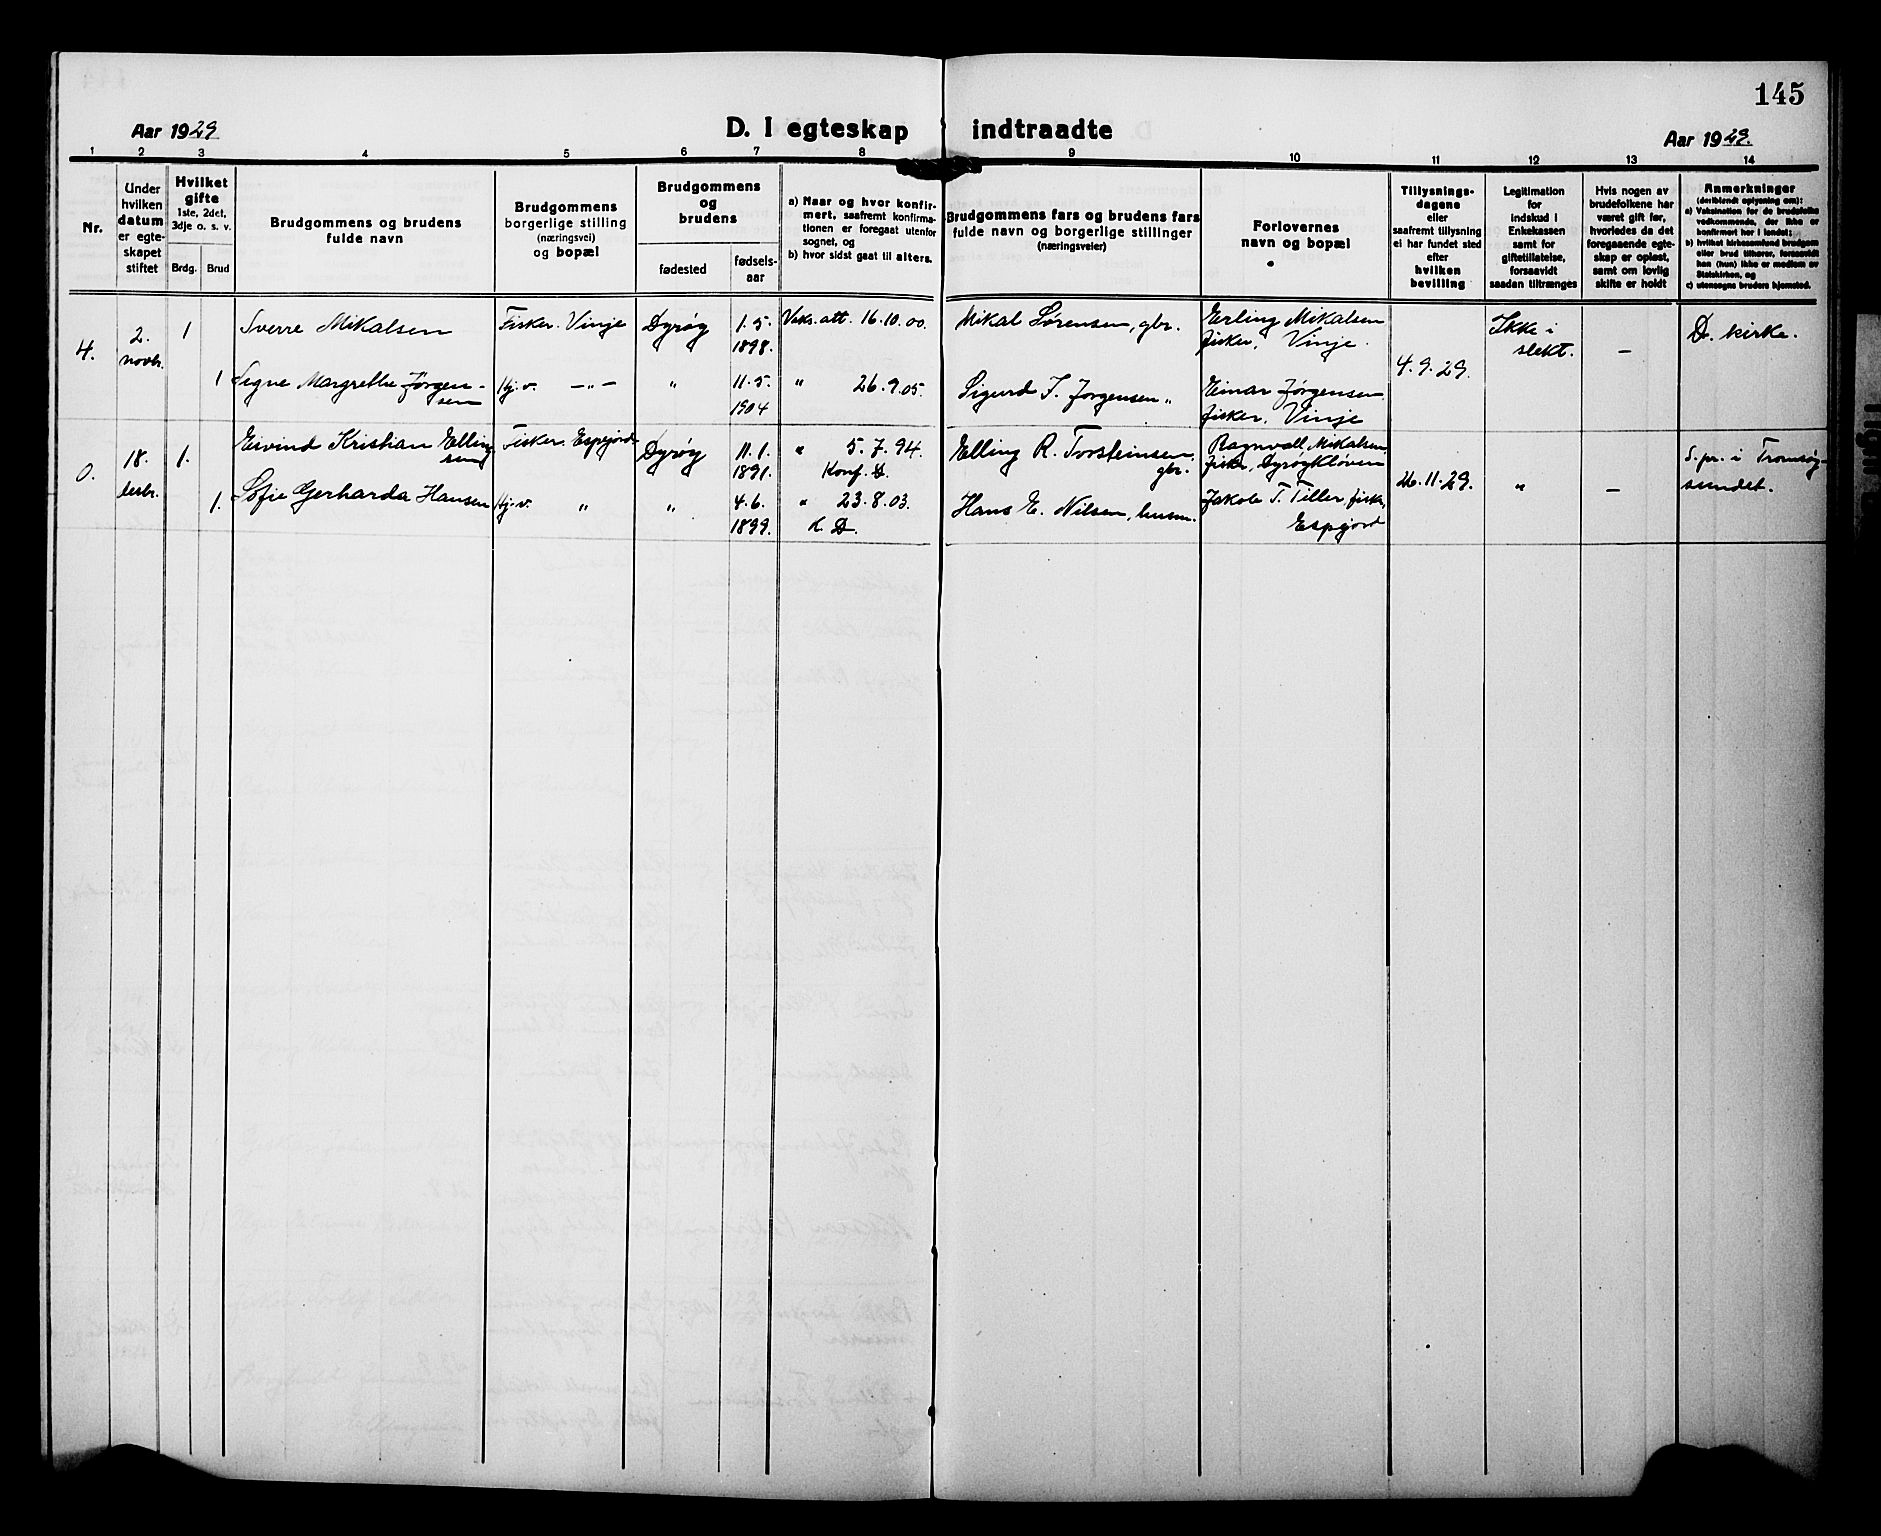 145
Aar 1929
D. I egteskap indtraadte
Aar 1929.
1 2 3 4 5 6 7 8 9 10 11 12 13 14
Nr.
Under
hvilken
datum
er egte-
skapet
stiftet
Hvilket
gifte
1ste, 2det,
3dje o. s. v.
Brdg. Brud
Brudgommens og brudens
fulde navn
Brudgommens
borgerlige stilling
(næringsvei)
og bopæl
Brudgommens
og
brudens
fødested
fødsels-
aar
a) Naar og hvor konfir-
mert, saafremt konfirma-
tionen er foregaat utenfor
sognet, og
b) hvor sidst gaat til alters.
Brudgommens fars og brudens fars
fulde navn og borgerlige stillinger
(næringsveier)
Forlovernes
navn og bopæl
Tillysnings-
dagene
eller
saafremt tillysning
ei har fundet sted
efter
hvilken
bevilling
Legitimation
for
indskud i
Enkekassen
samt for
giftetillatelse,
forsaavidt
saadan tiltrænges
Hvis nogen av
brudefolkene har
været gift før,
hvorledes da det
foregaaende egte-
skap er opløst,
samt om lovlig
skifte er holdt
Anmerkninger
(deriblandt oplysning om):
a) Vaksination for de brudefolks
vedkommende, der ikke er
konfirmert her i landet;
b) hvilket kirkesamfund brudgom
eller brud tilhører, forsaavidt
han (hun) ikke er medlem av
Statskirken, og
c) utensogns bruders hjemsted.
4.
2.
novbr.
1 Sverre Mikalsen
Fisker. Vinje
Dyrøy
1.5.
1898.
Vaks. att. 16.10.00.
Mikal Sørensen, gbr.
Erling Mikalsen
fisker, Vinje.
4.9.29.
Ikke i
slekt.
—
D. kirke.
1 Signe Margrethe Jørgen-
sen
Hj.v. —"—
"
11.5.
1904
" 26.9.05.
Sigurd I. Jørgensen "
Einar Jørgensen
fisker, Vinje
0.
18.
desbr.
1. Eivind Kristian Elling
sen
Fisker. Espejord
Dyrøy
11.1.
1891.
" 5.7.94.
Konf. D.
Elling R. Torsteinsen,
gbr.
Ragnvall Mikalsen,
fisker, Dyrøykløven
26.11.29.
"
—
S.pr. i Tromsøy-
sundet.
1. Sofie Gerharda Hansen
Hj.v. "
"
4.6.
1899.
" 23.8.03.
K. D.
Hans E. Nilsen, husm.
Jakob T. Tiller, fisker,
Espejord